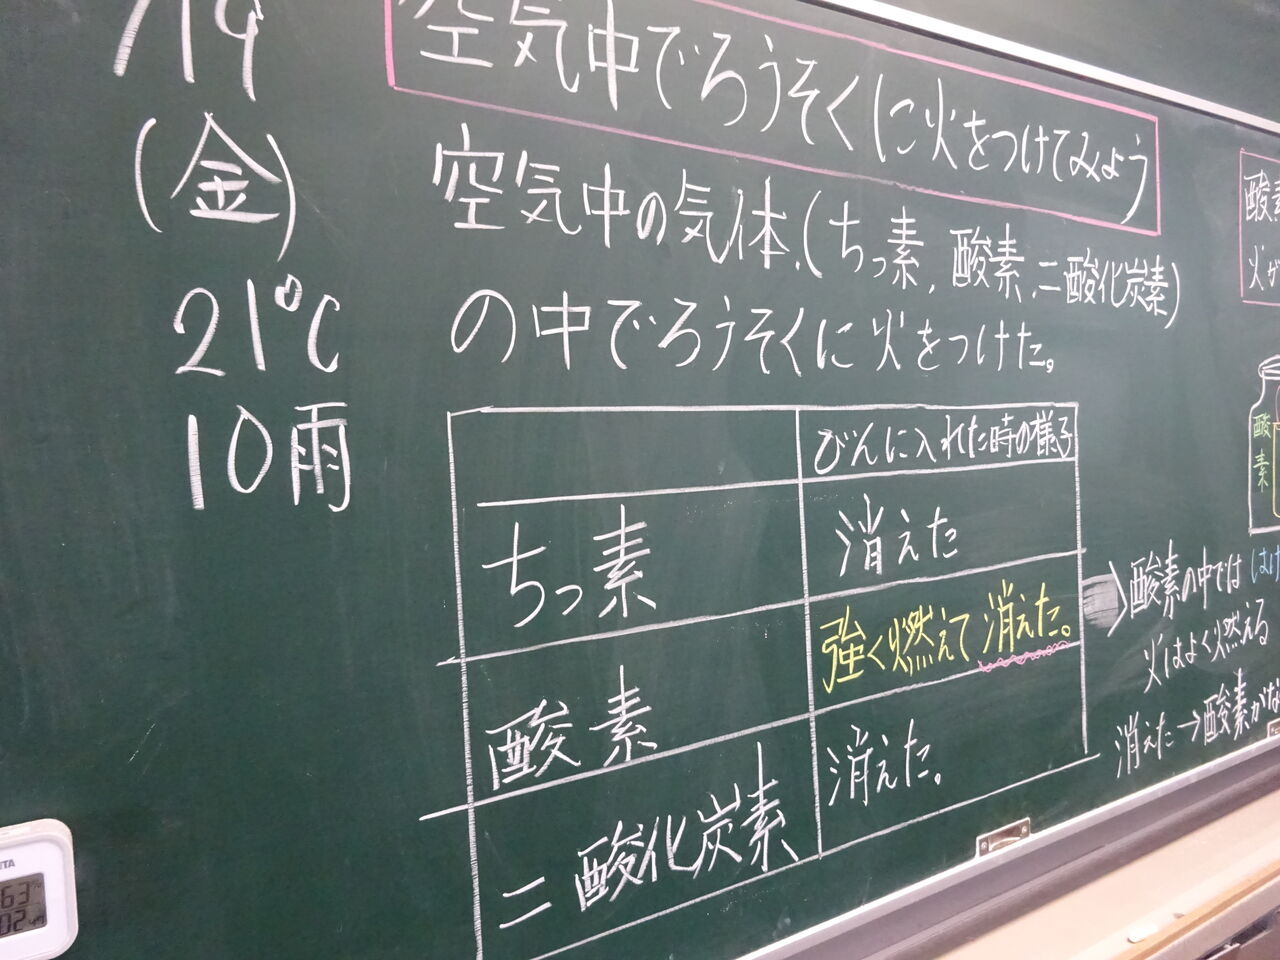 空気中でろうそくに火をつけてみよう
(金)
21℃
10雨
空気中の気体.(ちっ素,酸素,二酸化炭素)
の中でろうそくに火をつけた。
びんに入れた時の様子
ちっ素 消えた
酸素 強く燃えて消えた。
二酸化炭素 消えた。
酸素の中では
火はよく燃える
消えた→酸素が
酸素
63